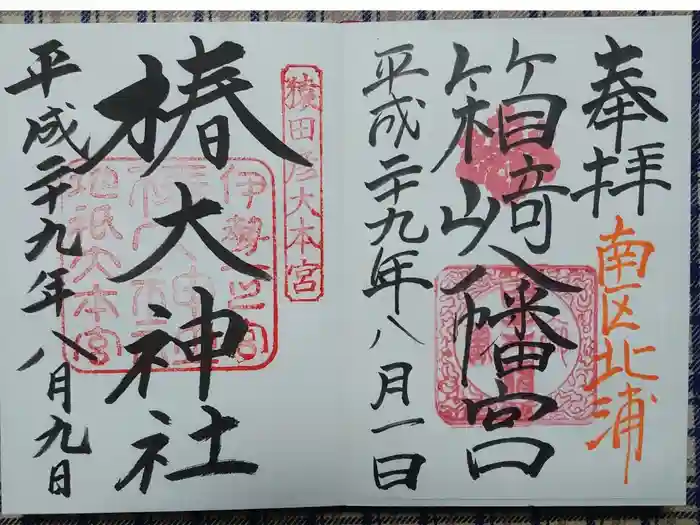 奉拝
南区北浦
箱崎八幡宮
平成二十九年八月一日
猿田彦大本宮
椿大神社
伊勢一之宮
地祇大本宮
平成二十九年八月九日